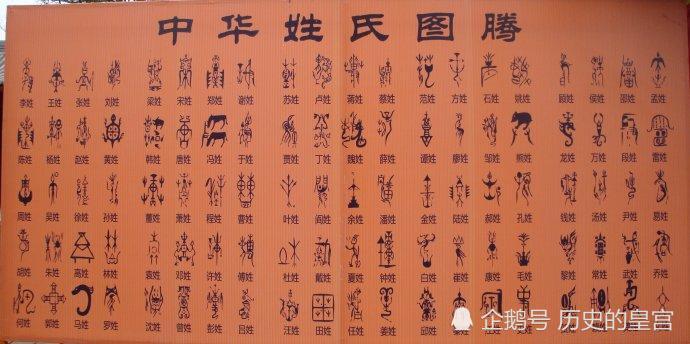 中华姓氏图腾
李姓 王姓 张姓 刘姓 梁姓 宋姓 郑姓 谢姓 苏姓 卢姓 蒋姓 蔡姓 范姓 方姓 石姓 姚姓 顾姓 侯姓 邵姓 孟姓
陈姓 杨姓 赵姓 黄姓 韩姓 唐姓 冯姓 于姓 贾姓 丁姓 魏姓 薛姓 谭姓 廖姓 邹姓 熊姓 龙姓 万姓 段姓 雷姓
周姓 吴姓 徐姓 孙姓 董姓 萧姓 程姓 曹姓 叶姓 阎姓 余姓 潘姓 金姓 陆姓 郝姓 孔姓 钱姓 汤姓 尹姓 易姓
胡姓 朱姓 高姓 林姓 袁姓 邓姓 许姓 傅姓 杜姓 戴姓 夏姓 钟姓 白姓 崔姓 康姓 毛姓 黎姓 常姓 武姓 乔姓
何姓 郭姓 马姓 罗姓 沈姓 曾姓 彭姓 吕姓 汪姓 田姓 任姓 姜姓 邱姓
企鹅号 历史的皇宫